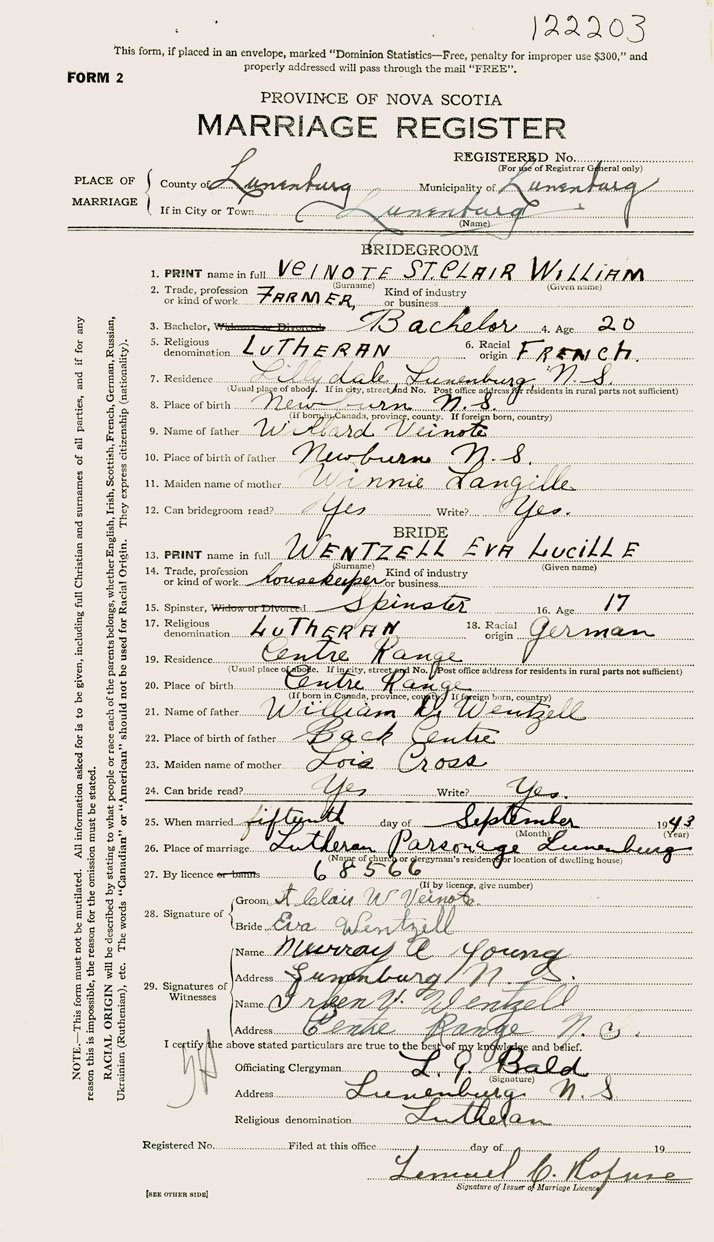 122203
This form, if placed in an envelope, marked "Dominion Statistics—Free, penalty for improper use $300," and
properly addressed will pass through the mail "FREE".
FORM 2
PROVINCE OF NOVA SCOTIA
MARRIAGE REGISTER
REGISTERED No.
(For use of Registrar General only)
PLACE OF MARRIAGE
County of Lunenburg Municipality of Lunenburg
If in City or Town Lunenburg
(Name)
BRIDEGROOM
1. PRINT name in full VEINOTE ST. CLAIR WILLIAM
(Surname) (Given name)
2. Trade, profession or kind of work FARMER, Kind of industry or business
3. Bachelor, Widower or Divorced Bachelor 4. Age 20
5. Religious denomination LUTHERAN 6. Racial origin FRENCH.
7. Residence Lillydale, Lunenburg, N.S.
(Usual place of abode. If in city, street and No. Post office address for residents in rural parts not sufficient)
8. Place of birth Newburn N.S.
(If born in Canada, province, county. If foreign born, country)
9. Name of father Willard Veinote
10. Place of birth of father Newburn N.S.
11. Maiden name of mother Winnie Langille
12. Can bridegroom read? Yes Write? Yes.
BRIDE
13. PRINT name in full WENTZELL EVA LUCILLE
(Surname) (Given name)
14. Trade, profession or kind of work housekeeper Kind of industry or business
15. Spinster, Widow or Divorced Spinster 16. Age 17
17. Religious denomination LUTHERAN 18. Racial origin German
19. Residence Centre Range
(Usual place of abode. If in city, street and No. Post office address for residents in rural parts not sufficient)
20. Place of birth Centre Range
(If born in Canada, province, county. If foreign born, country)
21. Name of father William Wentzell
22. Place of birth of father Back Centre
23. Maiden name of mother Lois Cross
24. Can bride read? Yes Write? Yes.
25. When married fifteenth day of September 1943
(Month) (Year)
26. Place of marriage Lutheran Parsonage Lunenburg
(Name of church or clergyman's residence or location of dwelling house)
27. By licence or banns 68566
(If by licence, give number)
28. Signature of
Groom St Clair W Veinote.
Bride Eva Wentzell
29. Signatures of Witnesses
Name Murray A Young
Address Lunenburg N.S.
Name Wentzell
Address Centre Range N.S.
I certify the above stated particulars are true to the best of my knowledge and belief.
Officiating Clergyman L. G. Bald
(Signature)
Address Lunenburg N.S.
Religious denomination Lutheran
Registered No. Filed at this office day of 19
Lemuel C. Rafuse
Signature of Issuer of Marriage Licence
[SEE OTHER SIDE]
NOTE.—This form must not be mutilated. All information asked for is to be given, including full Christian and surnames of all parties, and if for any
reason this is impossible, the reason for the omission must be stated.
RACIAL ORIGIN will be described by stating to what people or race each of the parents belongs, whether English, Irish, Scottish, French, German, Russian,
Ukrainian (Ruthenian), etc. The words "Canadian" or "American" should not be used for Racial Origin. They express citizenship (nationality).